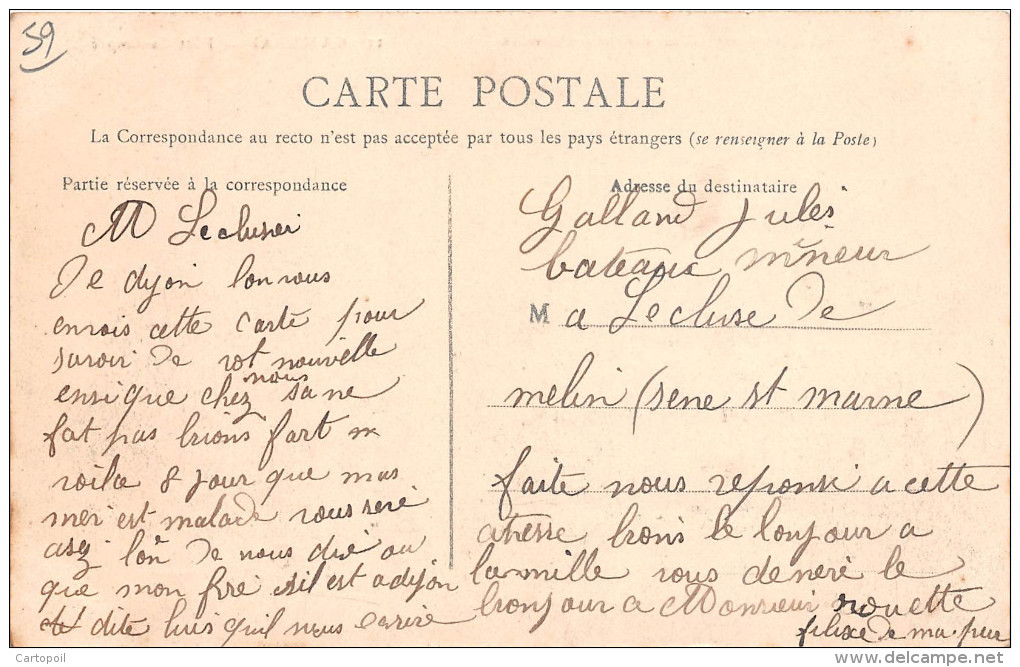 59
CARTE POSTALE
La Correspondance au recto n'est pas acceptée par tous les pays étrangers (se renseigner à la Poste)
Partie réservée à la correspondance
M Leclusiei
Je dyon lonvous
envois cette carte pour
savoir de vot nouvelle
ensique chez nous sa ne
fat pas brions fart
voila 8 jour que mas
mer est malade vous seré
asez lon de nous dié au
que mon fire est a dyon
dite luis quil nous écrire
Adresse du destinataire
Galland Jules
bateaux mineur
M a Lecluse de
melin (sene st marne)
faite nous reponse a cette
atresse brons le lonjour a
la mille vous deneré le
bronjour a Monsieur rouette
filixe de ma peur
Cartopoil
delcampe.net